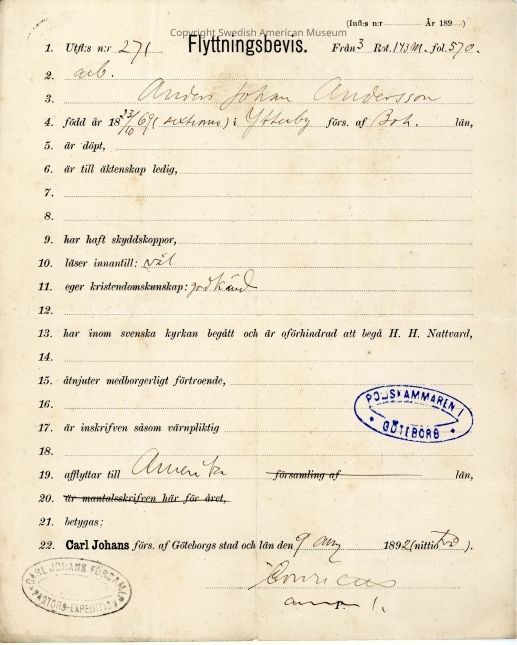 Copyright Swedish American Museum
(Infl: s n:r
År 189 )
1. Utfl: s n:r 271 Flyttningsbevis. Från 3 Rot. 143 M. fol. 570.
2. arb.
3. Anders Johan Andersson
4. född år 18 23/10 69 (sextionio) i Ytterby förs. af Boh. län,
5. är döpt,
6. är till äktenskap ledig,
7.
8.
9. har haft skyddskoppor,
10. läser innantill: väl
11. eger kristendomskunskap: godkänd
12.
13. har inom svenska kyrkan begått och är oförhindrad att begå H. H. Nattvard,
14.
15. åtnjuter medborgerligt förtroende,
16.
POLISKAMMAREN I
GÖTEBORG
17. är inskrifven såsom värnpliktig
18.
19. afflyttar till Amerika församling af län,
20. är mantalsskrifven här för året,
21. betygas;
22. Carl Johans förs. af Göteborgs stad och län den 9 1892 (nittiotvå).
CARL JOHANS FÖRSAML:
PASTORS-EXPEDITION